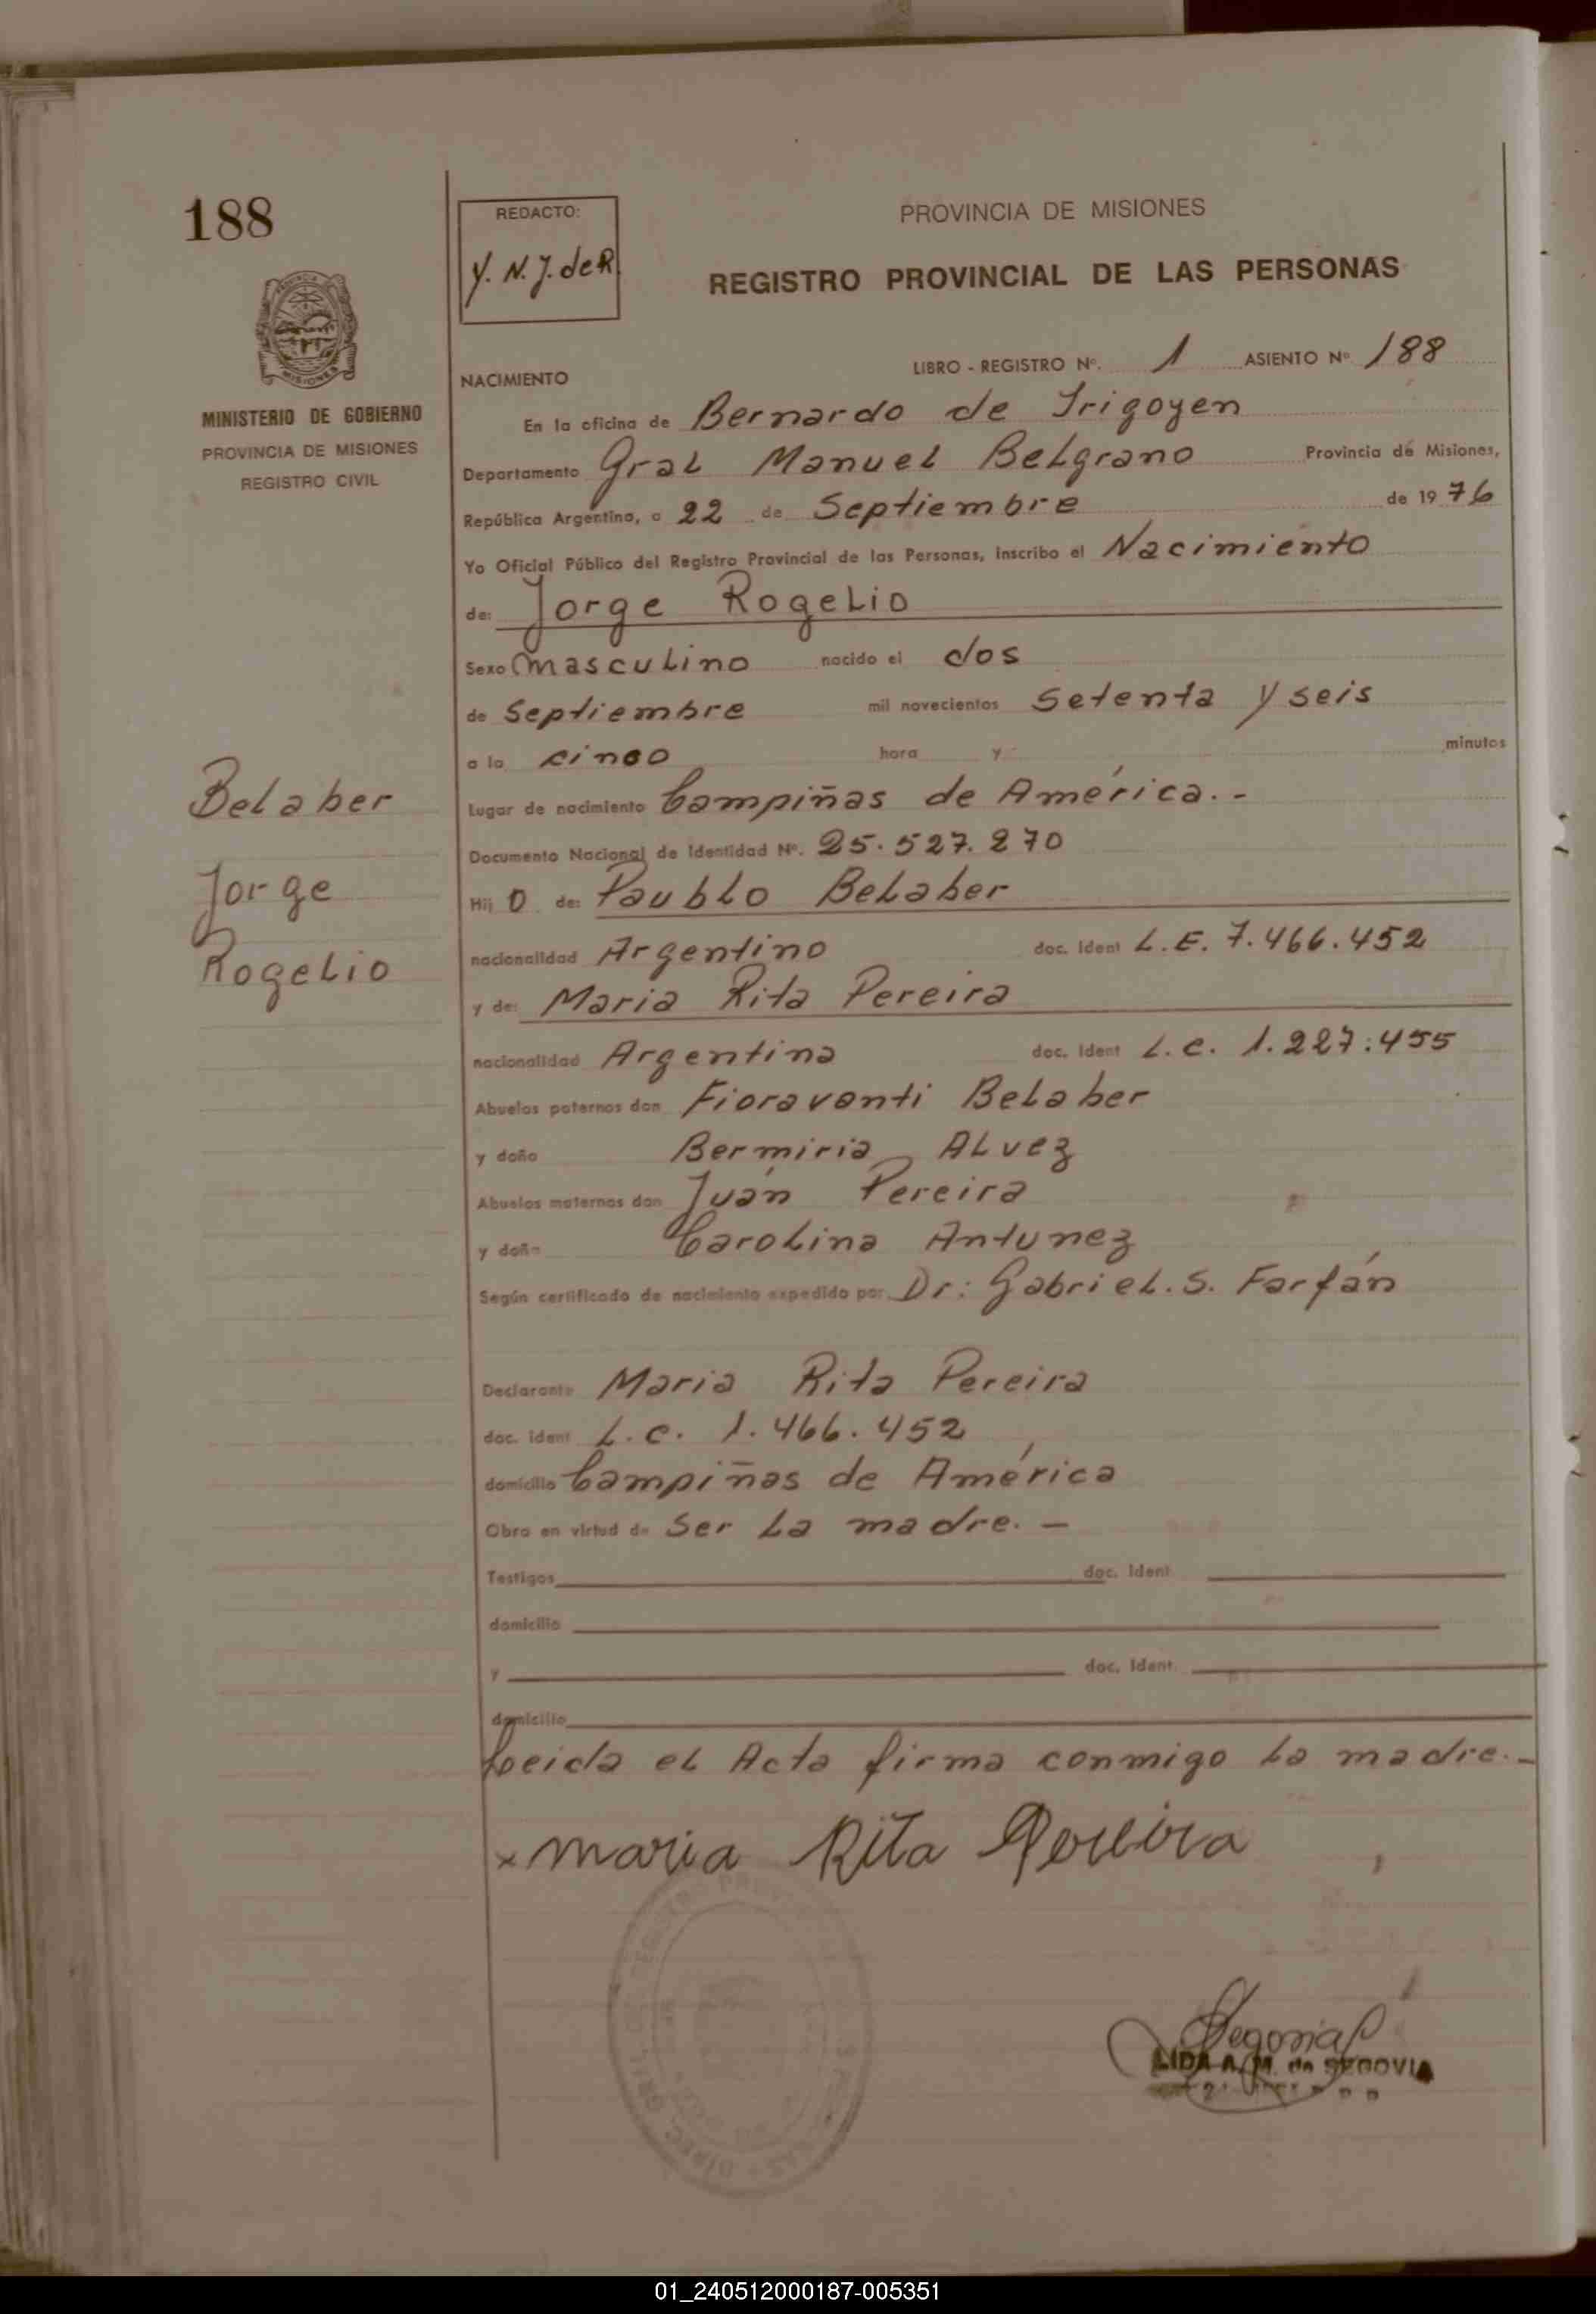 188
MISIONES
MINISTERIO DE GOBIERNO
PROVINCIA DE MISIONES
REGISTRO CIVIL
Belaber
Jorge
Rogelio
REDACTO:
Y. N. J. de R.
PROVINCIA DE MISIONES
REGISTRO PROVINCIAL DE LAS PERSONAS
LIBRO - REGISTRO Nº. 1 ASIENTO Nº 188
NACIMIENTO
En la oficina de Bernardo de Irigoyen
Departamento Gral Manuel Belgrano Provincia de Misiones,
República Argentina, a 22 de Septiembre de 1976
Yo Oficial Público del Registro Provincial de las Personas, inscribo el Nacimiento
de: Jorge Rogelio
Sexo masculino nacido el dos
de Septiembre mil novecientos setenta y seis
a la cinco hora y minutos
Lugar de nacimiento Campiñas de América.-
Documento Nacional de Identidad Nº. 25.527.270
Hij o de: Paublo Belaber
nacionalidad Argentino doc. Ident L.E. 7.466.452
y de: Maria Rita Pereira
nacionalidad Argentina doc. Ident L.C. 1.227.455
Abuelos paternos don Fioravanti Belaber
y doña Bermiria Alvez
Abuelos maternos don Juán Pereira
y doña Carolina Antunez
Según certificado de nacimiento expedido por Dr: Gabriel. S. Farfán
Declarante Maria Rita Pereira
doc. ident L.C. 1.466.452
domicilio Campiñas de América
Obra en virtud de Ser la madre. -
Testigos doc. Ident
domicilio
y doc. Ident.
domicilio
Leida el Acta firma conmigo la madre.-
x maria Rita Pereira
Segovia
LIDA A. M. de SEGOVIA
01_240512000187-005351